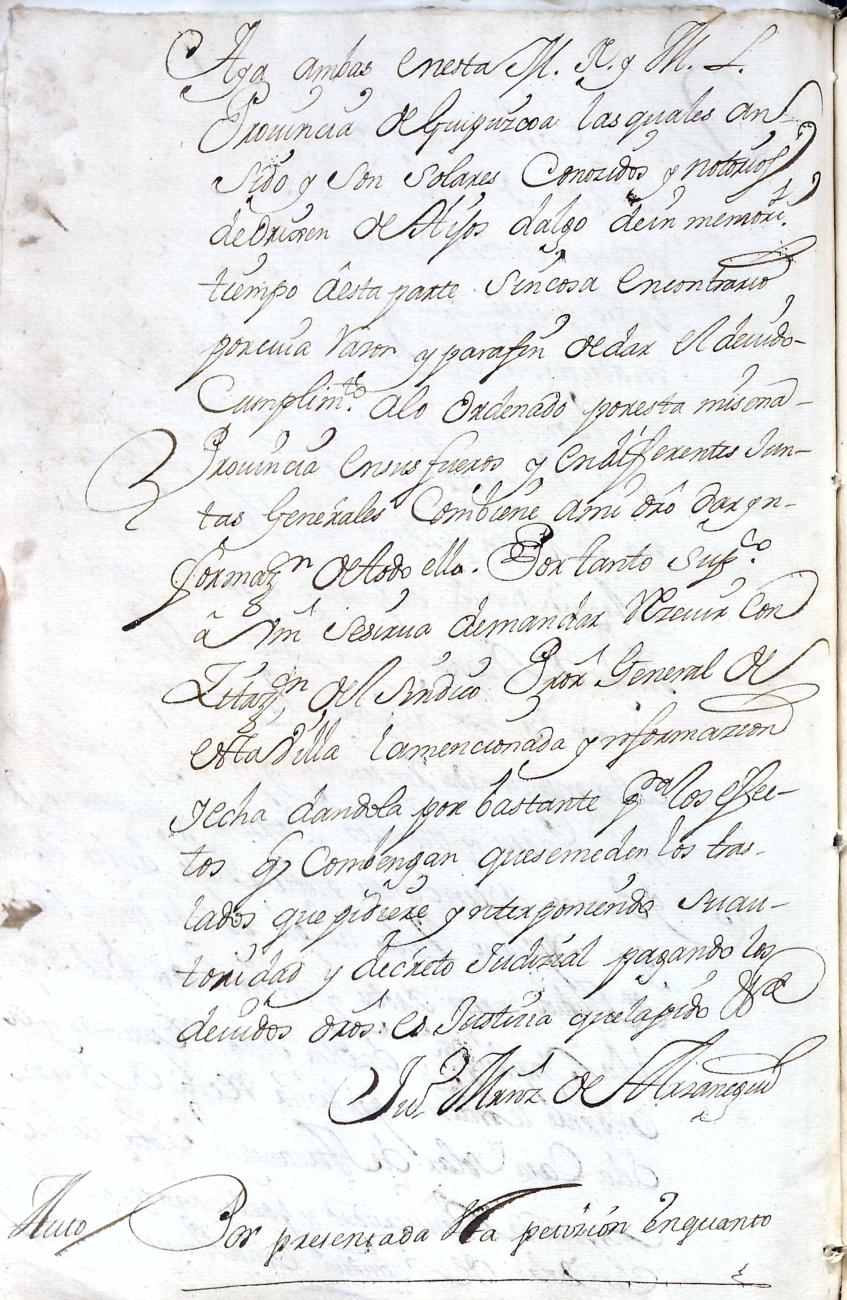 Aya ambas enesta M. N. y M. L.
Prouincia de Guipuzcoa las quales an
Sido y Son Solares Conozidos y notorios
de Orixen de Hijos dalgo de in memori.
tiempo a esta parte Sin cosa en contrario
por cuia razon y para fin de dar el deuido
Cumplim.to alo Ordenado por esta misma
Prouincia en sus fueros y en differentes Jun-
tas Generales Combiene ami dro dar yn-
formaz.n de todo ello. Por tanto Sup.co
â Vm Se sirua de mandar Rezeuir Con
Zitaz.n del Sindico Pror General de
esta Villa la mencionada ynformazion
y echa dandola por bastante p.ra los effec-
tos q Combengan que se me den los tras-
lados que pidiere ynterponiendo Su au-
toridad y decreto Judizial pagando los
deuidos dros: es Justicia que la pido &a
Ju.o Mrnz de Arranegui
Auto Por presentada esta petizion en quanto